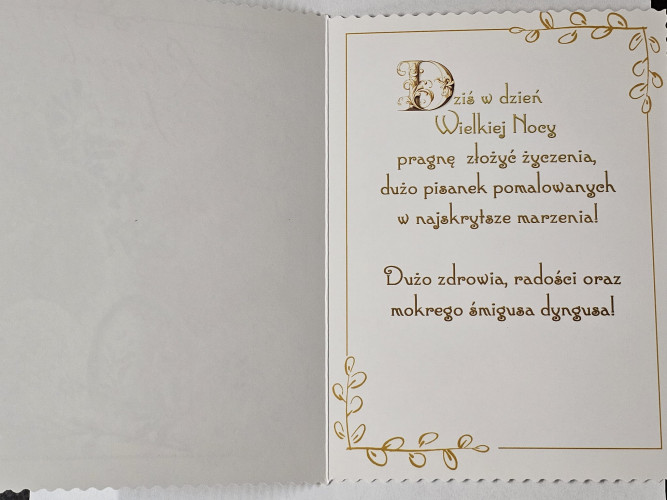 Dziś w dzień
Wielkiej Nocy
pragnę złożyć życzenia,
dużo pisanek pomalowanych
w najskrytsze marzenia!
Dużo zdrowia, radości oraz
mokrego śmigusa dyngusa!